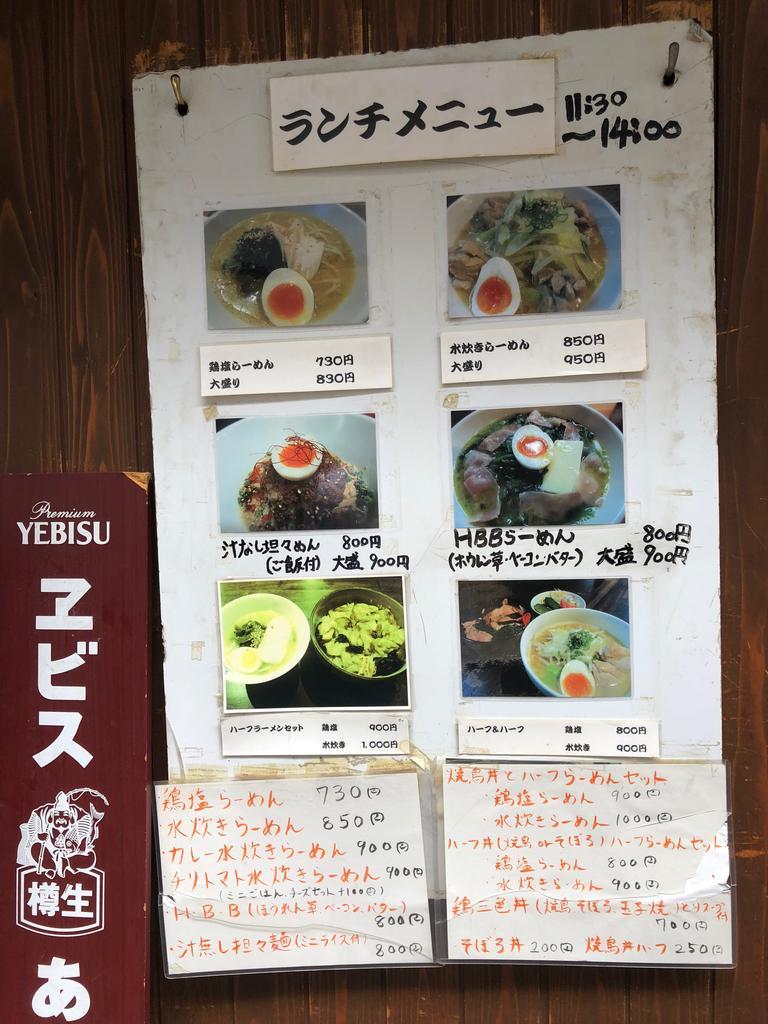 ランチメニュー
11:30
～14:00
鶏塩らーめん 730円
大盛り 830円
水炊きらーめん 850円
大盛り 950円
汁なし坦々めん 800円
(ご飯付) 大盛 900円
HBBらーめん 800円
(ホウレン草・ベーコン・バター) 大盛 900円
ハーフラーメンセット 鶏塩 900円
水炊き 1,000円
ハーフ&ハーフ 鶏塩 800円
水炊き 900円
鶏塩らーめん 730円
・水炊きらーめん 850円
・カレー水炊きらーめん 900円
・チリトマト水炊きらーめん 900円
(ミニごはん、チーズセット+100円)
・H.B.B(ほうれん草、ベーコン、バター)
800円
・汁無し坦々麺(ミニライス付) 800円
焼鳥丼とハーフらーめんセット
・鶏塩らーめん 900円
・水炊きらーめん 1000円
ハーフ丼(焼鳥 or そぼろ)ハーフらーめんセット
・鶏塩らーめん 800円
・水炊きらーめん 900円
鶏三色丼(焼鳥、そぼろ、玉子焼)とりスープ付
700円
・そぼろ丼 200円 焼鳥丼ハーフ 250円
Premium
YEBISU
ヱビス
樽生
あ